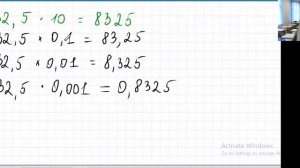 32,5 · 10 = 8325
32,5 · 0,1 = 83,25
32,5 · 0,01 = 8,325
32,5 · 0,001 = 0,8325
Activate Windows
Go to Settings to activate Windows.